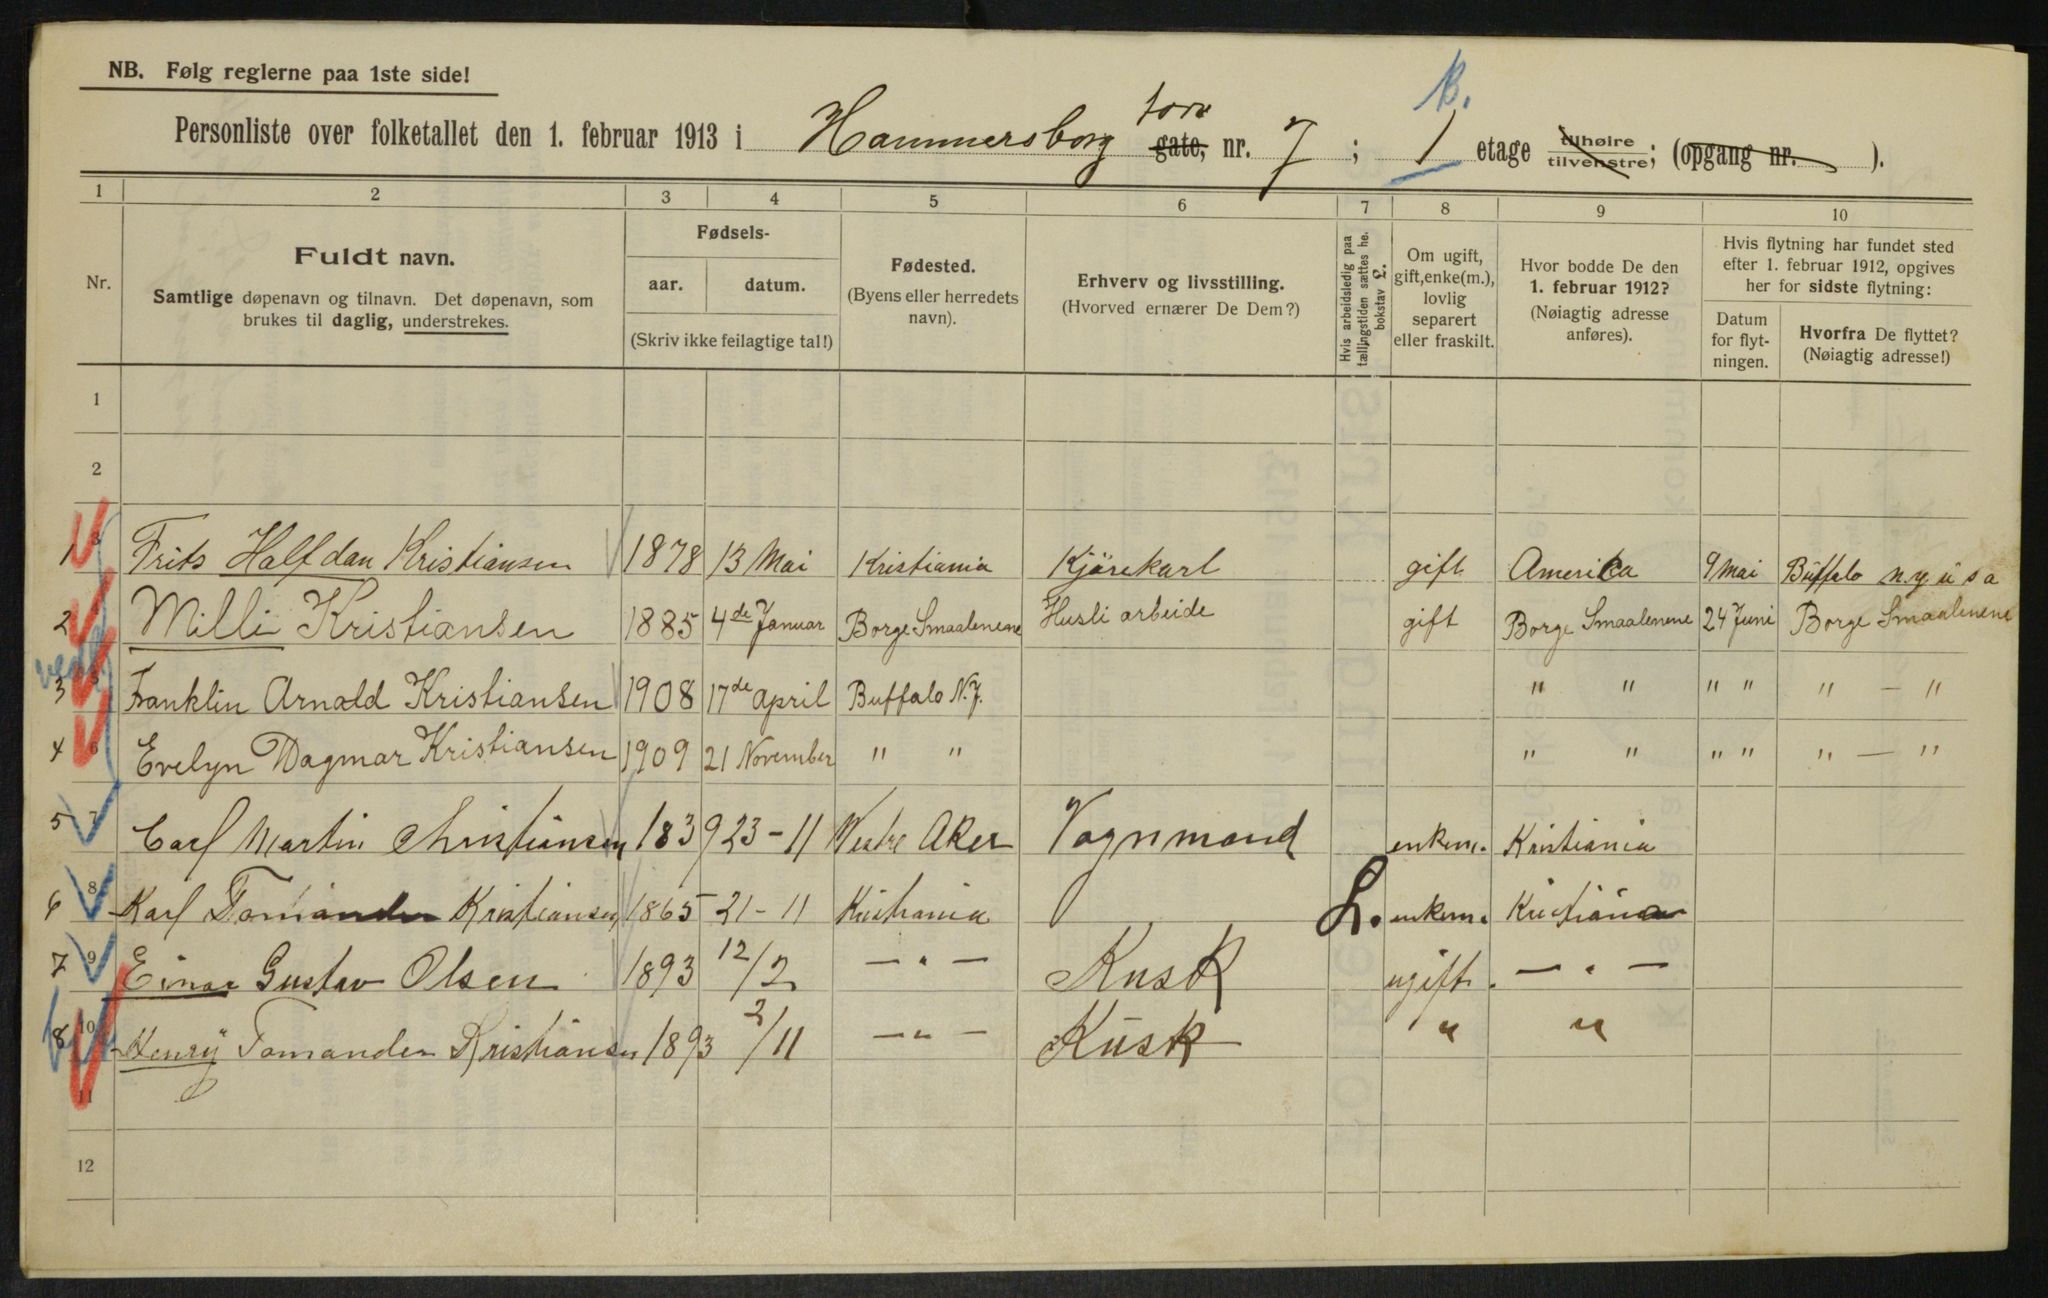 NB. Følg reglerne paa 1ste side!
B.
Personliste over folketallet den 1. februar 1913 i Hammersborg torv gate, nr. 7 ; 1 etage tilhøire tilvenstre; (opgang nr. ).
1 2 3 4 5 6 7 8 9 10
Nr.
Fuldt navn.
Samtlige døpenavn og tilnavn. Det døpenavn, som
brukes til daglig, understrekes.
Fødsels-
aar. datum.
(Skriv ikke feilagtige tal!)
Fødested.
(Byens eller herredets
navn).
Erhverv og livsstilling.
(Hvorved ernærer De Dem?)
Hvis arbeidsledig paa
tællingstiden sættes he.
bokstav L.
Om ugift,
gift, enke(m.),
lovlig
separert
eller fraskilt.
Hvor bodde De den
1. februar 1912?
(Nøiagtig adresse
anføres).
Hvis flytning har fundet sted
efter 1. februar 1912, opgives
her for sidste flytning:
Datum
for flyt-
ningen.
Hvorfra De flyttet?
(Nøiagtig adresse!)
1
2
1 3 Frits Halfdan Kristiansen 1878 13 Mai Kristiania Kjörekarl gift America 9 Mai Buffalo n.y u s a
2 Milli Kristiansen 1885 4de Januar Borge Smaalenene Husli arbeide gift Borge Smaalenene 24 Juni Borge Smaalenene
3 5 Franklin Arnold Kristiansen 1908 17de April Buffalo N.Y. " " " " " — "
4 6 Evelyn Dagmar Kristiansen 1909 21 November " " " " " " " — "
5 7 Carl Martin Christiansen 1839 23-11 Vestre Aker Vognmand enkem. Kristiania
6 8 Karl Tomander Kristiansen 1865 21-11 Kristiania L. enkem. Kristiania
7 9 Einar Gustav Olsen 1893 12/2 — " — Kusk ugift. — " —
8 10 Henry Tomander Kristiansen 1893 2/11 — " — Kusk " "
11
12